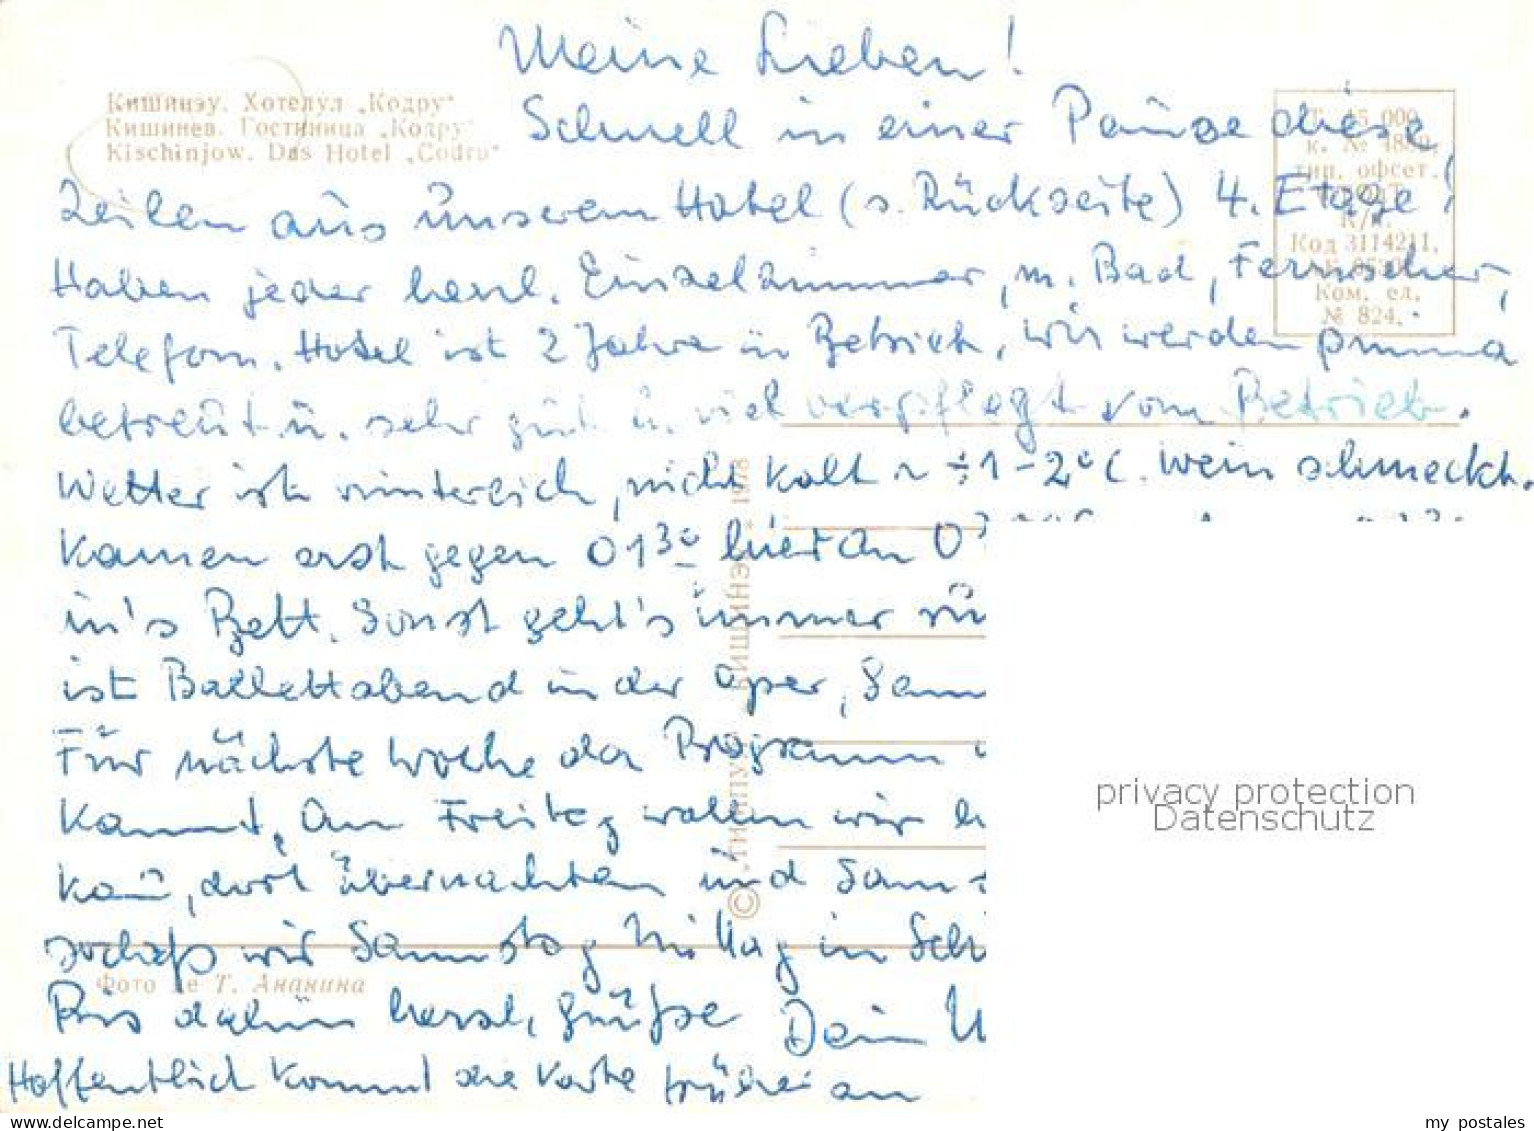 Meine Lieben!
Кишинэу. Хотелул „Кодру“
Кишинев. Гостиница „Кодру“
Kischinjow. Das Hotel „Codru“
Schnell in einer Pause diese
Т. 45 000.
тип. офсет.
Код 3114211.
Ком. ед.
№ 824.
Zeilen aus unserem Hotel (s. Rückseite) 4. Etage!
Haben jeder herrl. Einzelzimmer, m. Bad, Fernseher,
Telefon. Hotel ist 2 Jahre in Betrieb, wir werden prima
betreut u. sehr gut u. viel verpflegt vom Betrieb.
Wetter ist winterlich, nicht kalt ~ ÷1-2°C. Wein schmeckt.
Kamen erst gegen 01³⁰ hier an
in's Bett. Sonst geht's immer
ist Ballettabend in der Oper, Sam
Für nächste Woche der Programm
kannt. Am Freitag wollen wir
kau, dort übernachten und Sam-
sodaß wir Samstag Mittag in Sch
Фото де Т. Ананина
Bis dahin herzl. Grüße Dein U
Hoffentlich kommt die Karte früher an
© „Тимпул“ Кишинэу 1978
privacy protection
Datenschutz
my_postales